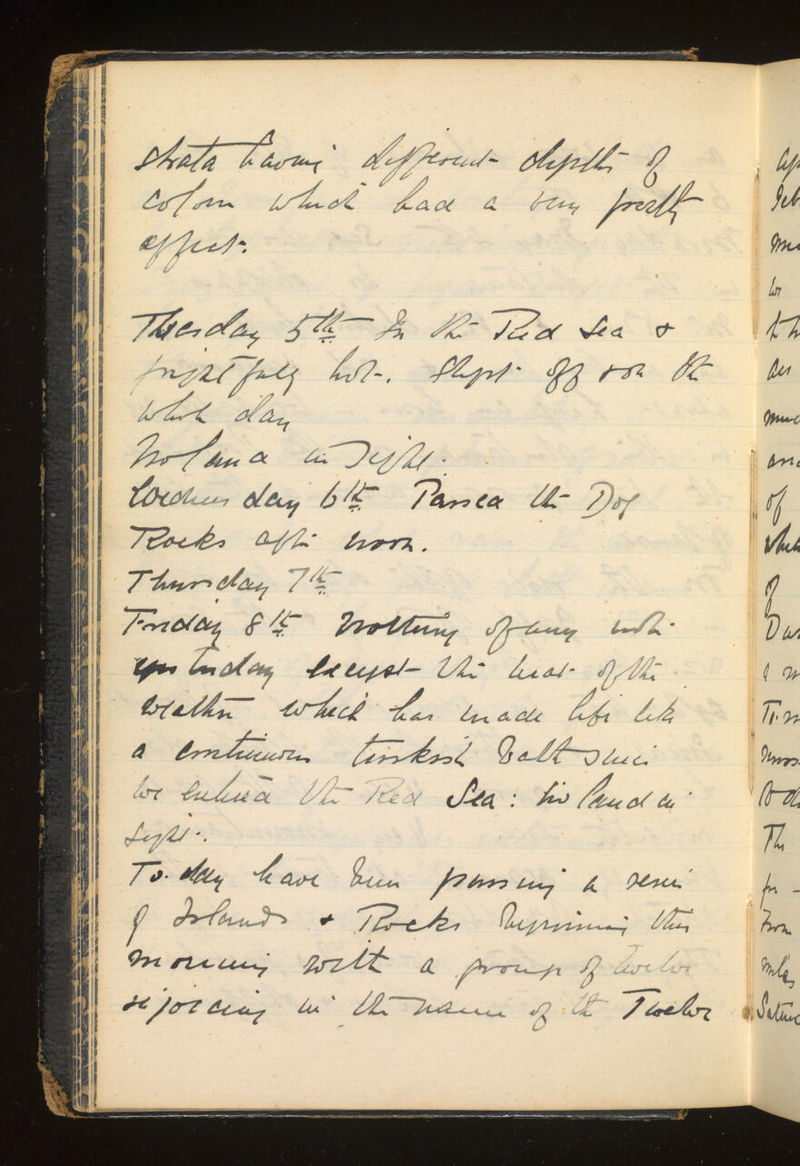 strata having different depths of
colour which had a very pretty
effect.
Tuesday 5th In the Red Sea &
frightfully hot. Slept off & on the
whole day
No land in sight.
Wednesday 6th Passed the Dog
Rocks after noon.
Thursday 7th
Friday 8th Nothing of any note
yesterday except the heat of the
weather which has made life like
a continuous turkish bath since
we entered the Red Sea: no land in
sight.
To-day have been passing a series
of Islands & Rocks beginning this
morning with a group of twelve
rejoicing in the name of the Twelve
of
of
Du
The
From
miles